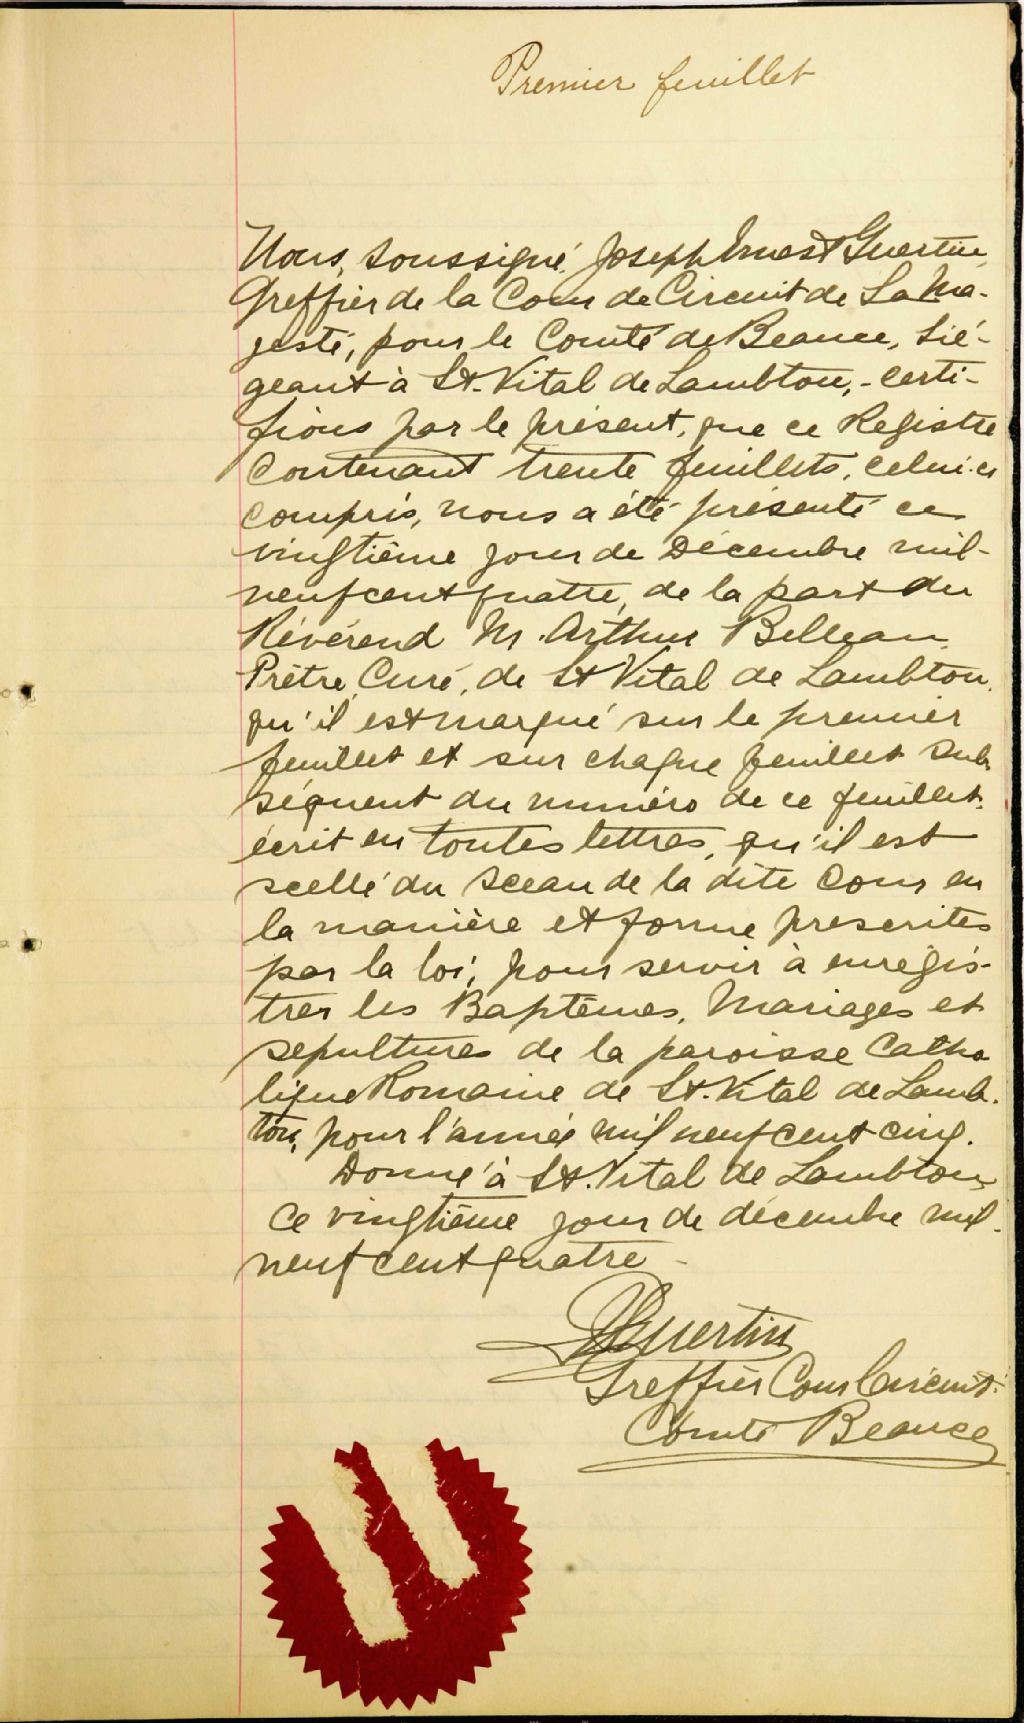 Premier feuillet
Nous, soussigné, Joseph Ernest Guertin,
Greffier de la Cour de Circuit de Sa Ma-
jesté, pour le Comté de Beauce, sié-
geant à St. Vital de Lambton, - certi-
fions par le présent, que ce Registre
contenant trente feuillets, celui-ci
compris, nous a été présenté ce
vingtième jour de Décembre mil-
neuf cent quatre, de la part du
Révérend M. Arthur Belleau,
Prêtre, Curé, de St Vital de Lambton,
qu'il est marqué sur le premier
feuillet et sur chaque feuillet sub-
séquent du numéro de ce feuillet,
écrit en toutes lettres, qu'il est
scellé du sceau de la dite Cour en
la manière et forme prescrites
par la loi, pour servir à enrégis-
trer les Baptêmes, Mariages et
sépultures de la paroisse Catho
lique Romaine de St. Vital de Lamb-
ton, pour l'année mil neuf cent cinq.
Donné à St. Vital de Lambton,
ce vingtième jour de décembre mil-
neuf cent quatre -
Guertin
Greffier Cour Circuit.
Comté Beauce